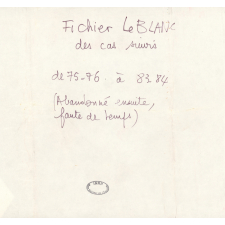 Fichier LeBLANC
des cas suivis
de 75-76 à 83 84
(Abandonné ensuite,
faute de temps)